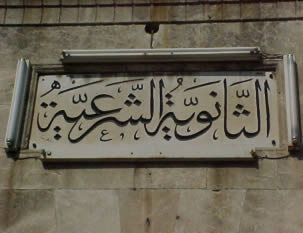 الثَّانَوِيَّةُ الشَّرْعِيَّة